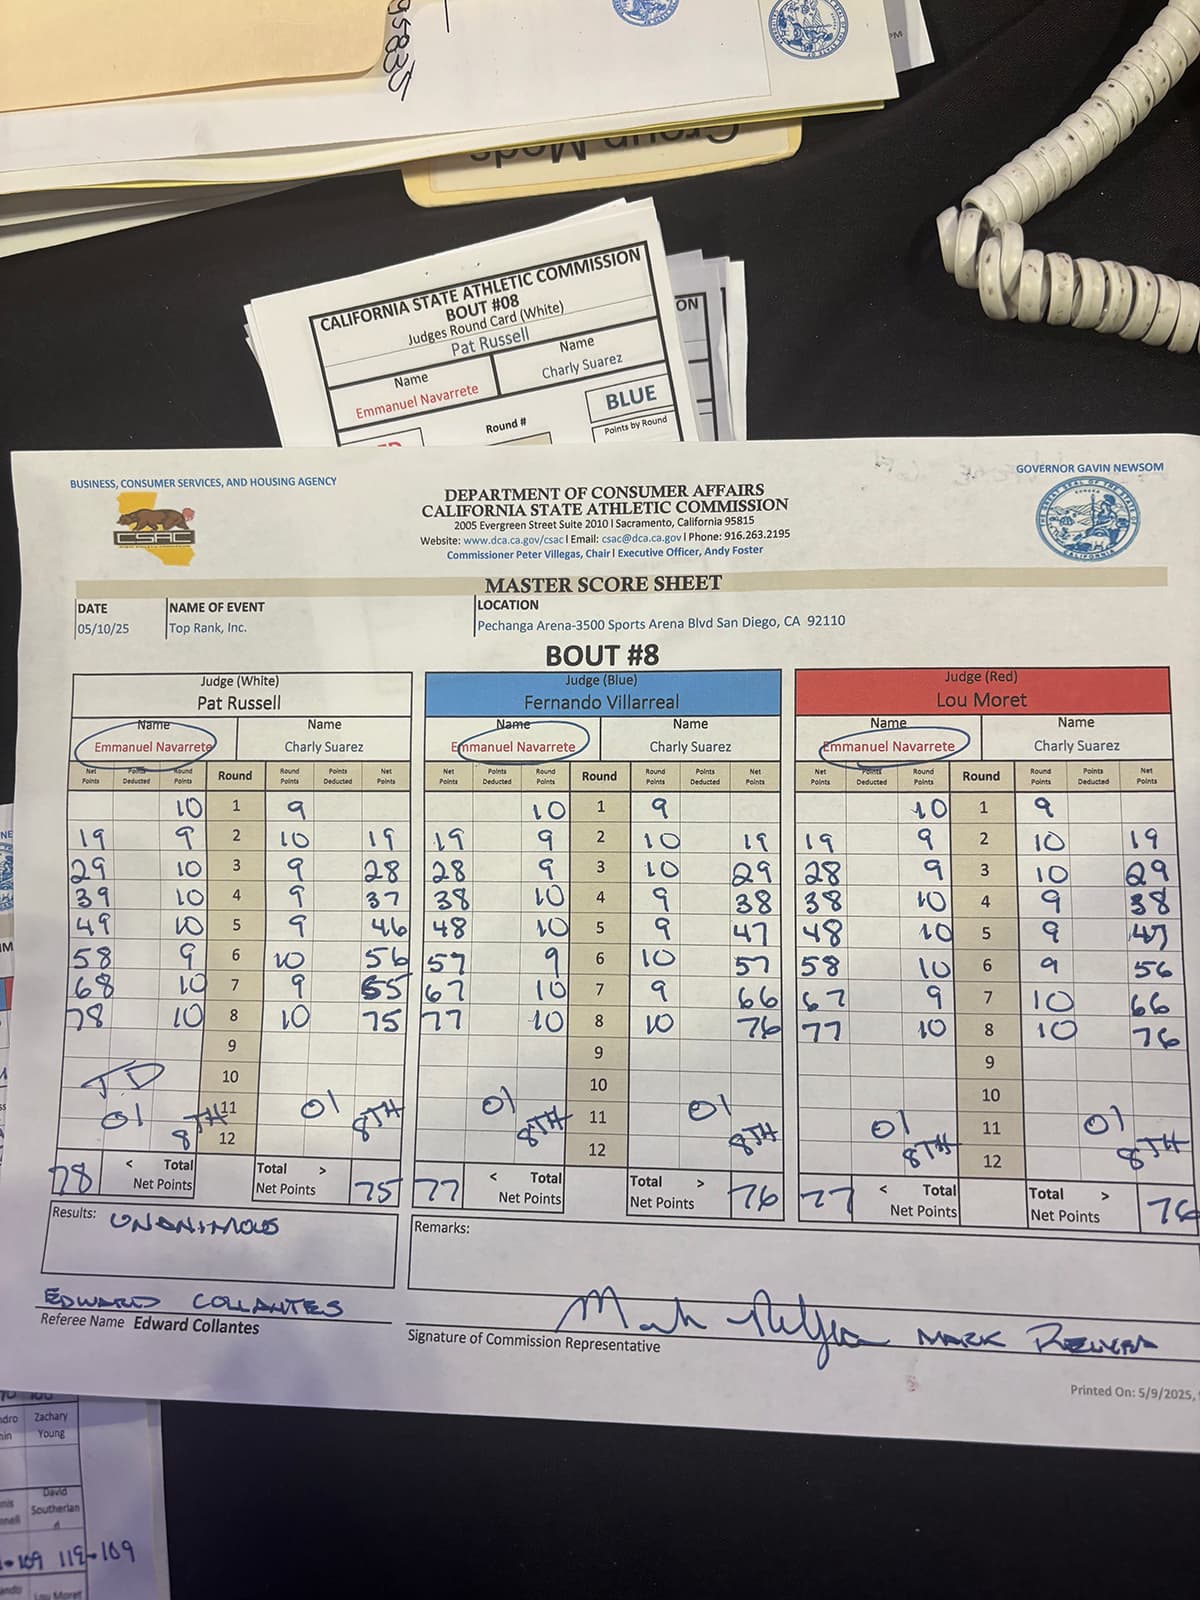 95835
Group Meds
CALIFORNIA STATE ATHLETIC COMMISSION
BOUT #08
Judges Round Card (White)
Pat Russell
Name Name
Emmanuel Navarrete Charly Suarez
Round # BLUE
Points by Round
ON
BUSINESS, CONSUMER SERVICES, AND HOUSING AGENCY
GOVERNOR GAVIN NEWSOM
CSAC
DEPARTMENT OF CONSUMER AFFAIRS
CALIFORNIA STATE ATHLETIC COMMISSION
2005 Evergreen Street Suite 2010 | Sacramento, California 95815
Website: www.dca.ca.gov/csac | Email: csac@dca.ca.gov | Phone: 916.263.2195
Commissioner Peter Villegas, Chair | Executive Officer, Andy Foster
MASTER SCORE SHEET
DATE NAME OF EVENT LOCATION
05/10/25 Top Rank, Inc. Pechanga Arena-3500 Sports Arena Blvd San Diego, CA 92110
BOUT #8
Judge (White) Judge (Blue) Judge (Red)
Pat Russell Fernando Villarreal Lou Moret
Name Name Name Name Name Name
Emmanuel Navarrete Charly Suarez Emmanuel Navarrete Charly Suarez Emmanuel Navarrete Charly Suarez
Net Points Points Deducted Round Points Round Round Points Points Deducted Net Points Net Points Points Deducted Round Points Round Round Points Points Deducted Net Points Net Points Points Deducted Round Points Round Round Points Points Deducted Net Points
10 1 9 10 1 9 10 1 9
19 9 2 10 19 19 9 2 10 19 19 9 2 10 19
29 10 3 9 28 28 9 3 10 29 28 9 3 10 29
39 10 4 9 37 38 10 4 9 38 38 10 4 9 38
49 10 5 9 46 48 10 5 9 47 48 10 5 9 47
58 9 6 10 56 57 9 6 10 57 58 10 6 9 56
68 10 7 9 65 67 10 7 9 66 67 9 7 10 66
78 10 8 10 75 77 10 8 10 76 77 10 8 10 76
9 9 9
TD 10 10 10
01 8TH 11 01 8TH 01 8TH 11 01 8TH 01 8TH 11 01 8TH
12 12 12
78 < Total Net Points Total > Net Points 75 77 < Total Net Points Total > Net Points 76 77 < Total Net Points Total > Net Points 76
Results: UNANIMOUS Remarks:
EDWARD COLLANTES
Referee Name Edward Collantes
Signature of Commission Representative
MARK
Printed On: 5/9/2025,
Zachary
Young
David
Southerlan
d
119-109
Lou Moret